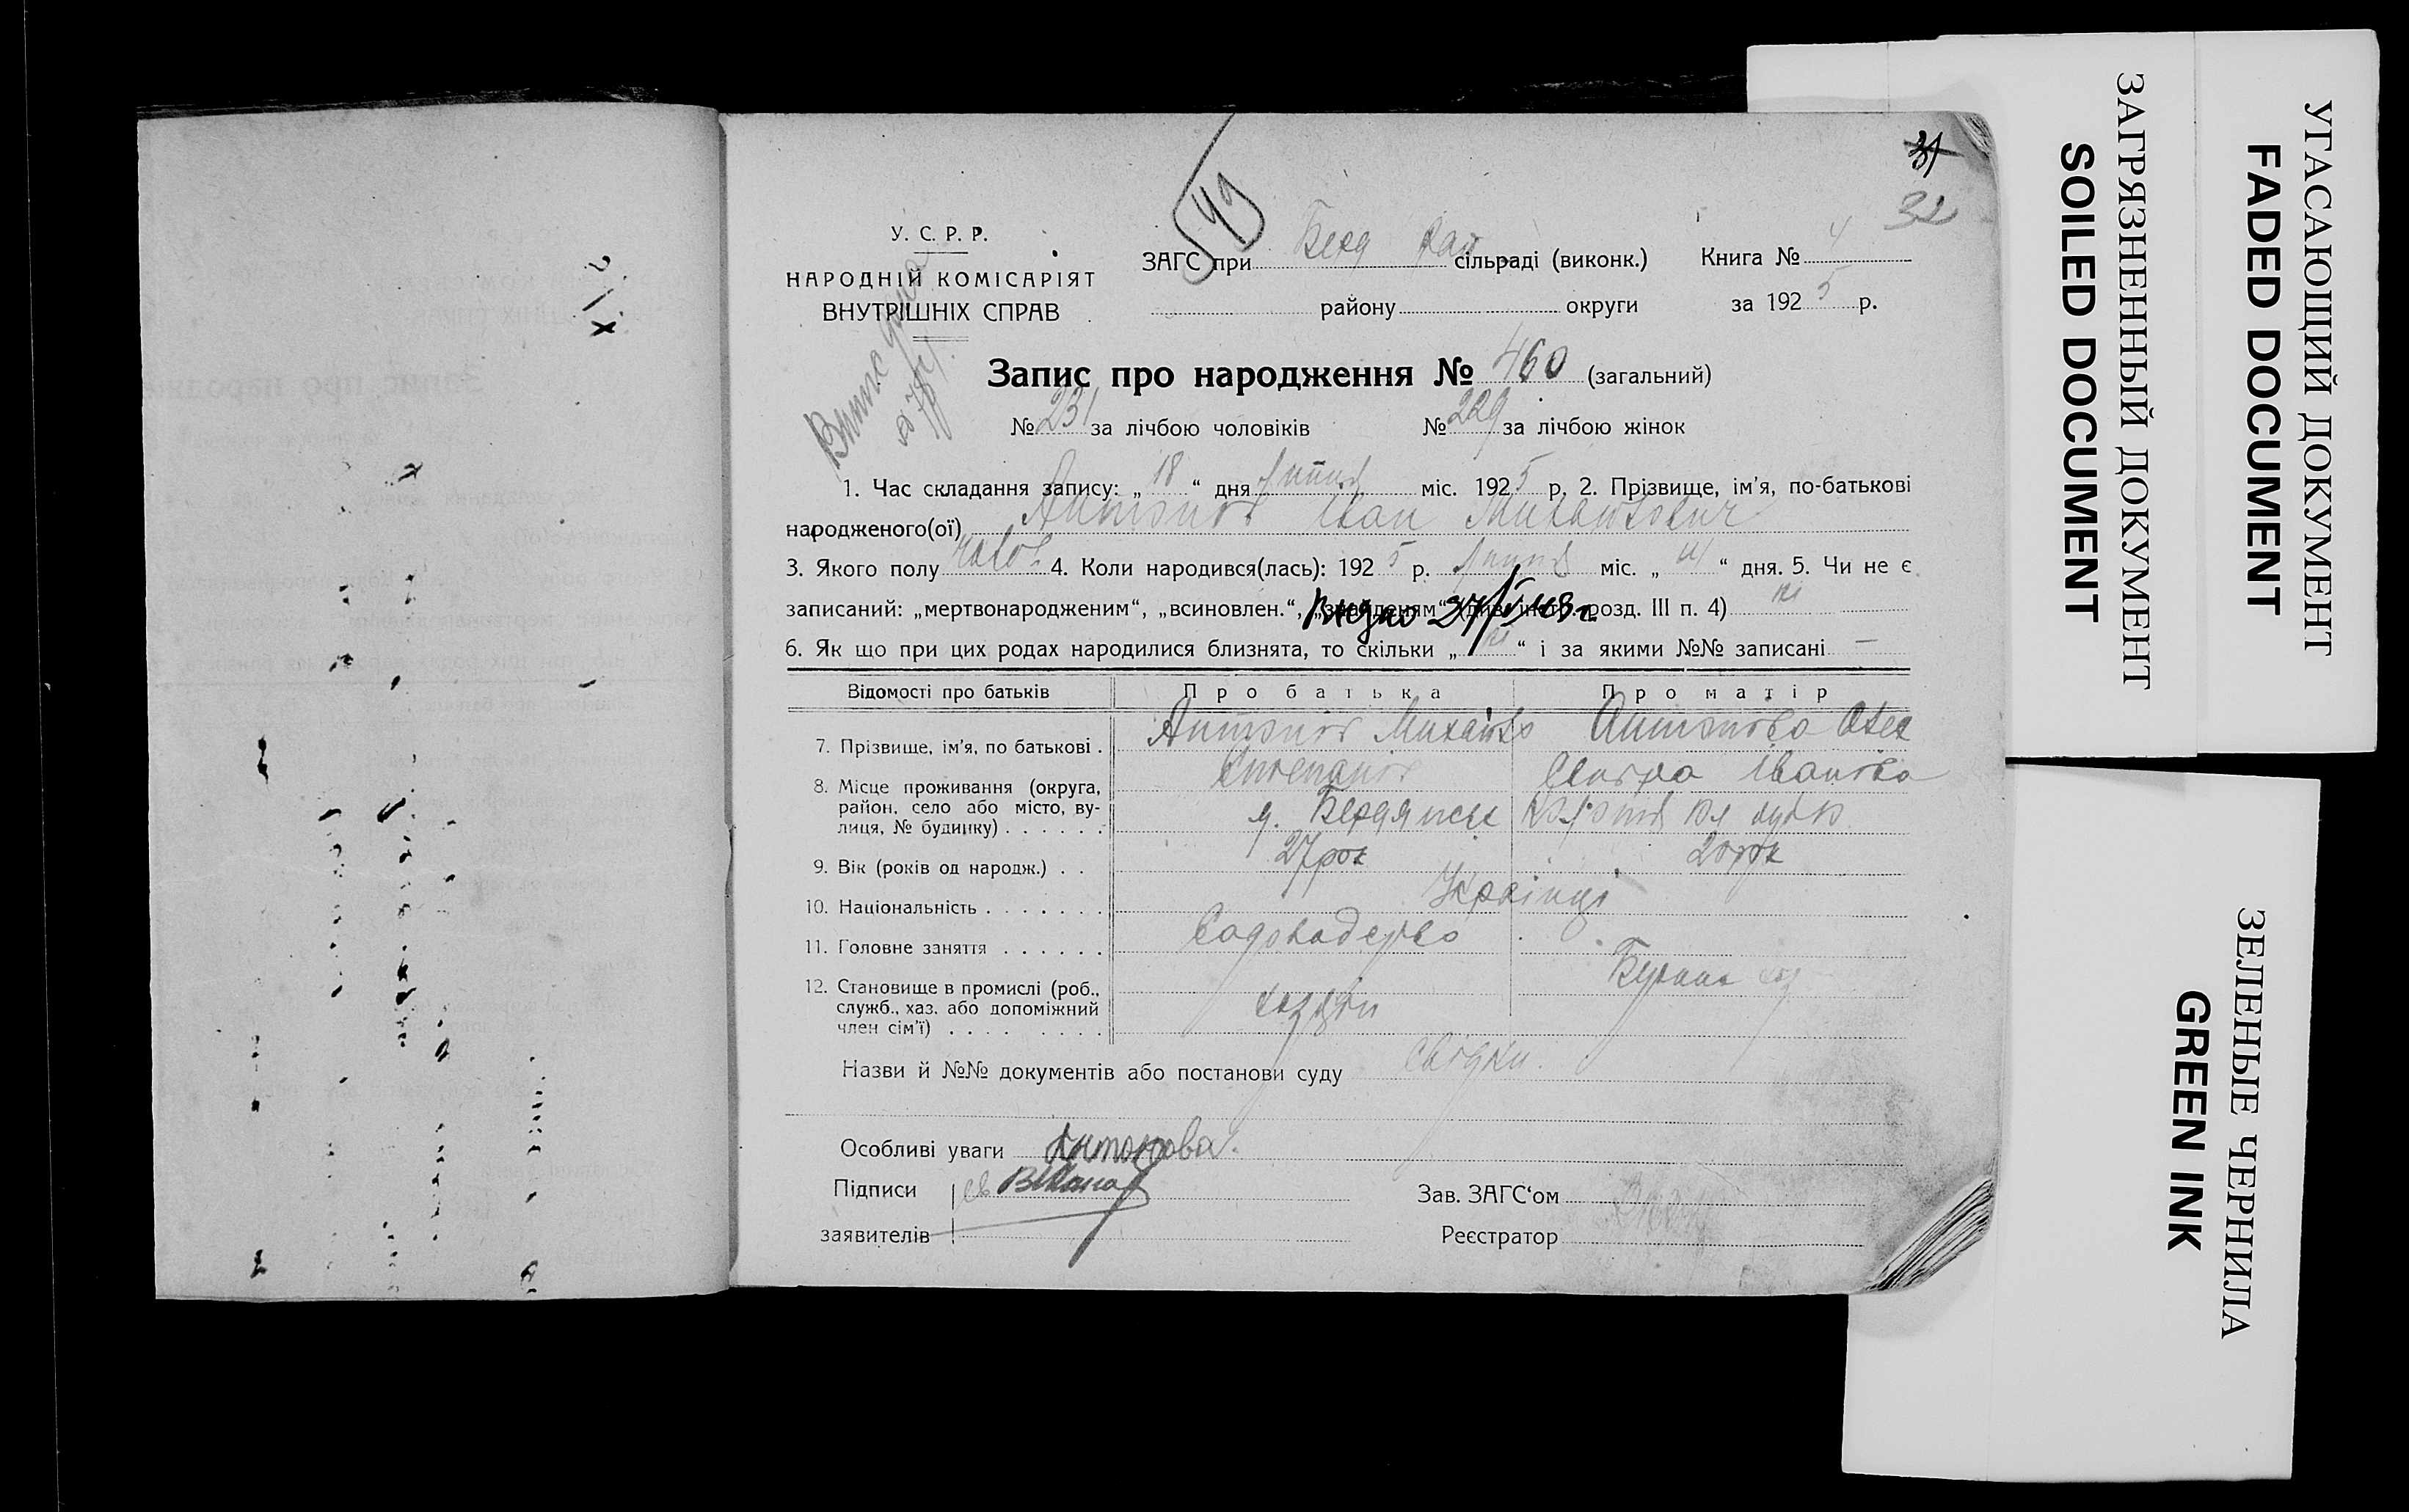 31
32
49
У. С. Р. Р.
НАРОДНІЙ КОМІСАРІЯТ
ВНУТРІШНІХ СПРАВ
ЗАГС при Берд рай сільраді (виконк.) Книга № 4
району округи за 1925 р.
Запис про народження № 460 (загальний)
№ 231 за лічбою чоловіків № 229 за лічбою жінок
1. Час складання запису: „ 18 “ дня липня міс. 1925 р. 2. Прізвище, ім’я, по-батькові
народженого(ої) Антонів Іван Михайлович
3. Якого полу чолов. 4. Коли народився(лась): 1925 р. липня міс. „ “ дня. 5. Чи не є
записаний: „мертвонародженим“, „всиновлен.“, „знайденям“ (див. інстр. розд. III п. 4) ні
6. Як що при цих родах народилися близнята, то скільки „ ні “ і за якими №№ записані —
Відомості про батьків Про батька Про матір
7. Прізвище, ім’я, по батькові . Антонів Михайло Антонова Олек
8. Місце проживання (округа, район, село або місто, вулиця, № будинку) . . . . . . Бердянськ
сандра Іванівна
9. Вік (років од народж.) . . 27 рок 20 рок
10. Національність . . . . . . . Українці
11. Головне заняття . . . . . . Садовадство
12. Становище в промислі (роб.,
служб., хаз. або допоміжний
член сім’ї) . . . . . . . . хазяїн
Назви й №№ документів або постанови суду свідки.
Особливі уваги Антонова.
Підписи
заявителів
Зав. ЗАГС‘ом
Реєстратор
УГАСАЮЩИЙ ДОКУМЕНТ
FADED DOCUMENT
ЗАГРЯЗНЕННЫЙ ДОКУМЕНТ
SOILED DOCUMENT
ЗЕЛЕНЫЕ ЧЕРНИЛА
GREEN INK